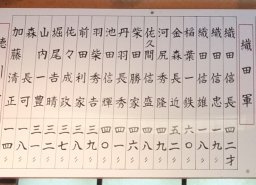 織田軍
織田信長 四二才
織田信忠 一九〃
織田信雄 一八〃
稲葉一鉄 六〇〃
金森長近 五二〃
河尻秀隆 四九〃
佐久間信盛 四八〃
柴田勝家 四六〃
丹羽長秀 四一〃
池田信輝 四〇〃
羽柴秀吉 三九〃
前田利家 三八〃
佐々成政
堀尾吉
山内一豊 三一〃
森長可 一八〃
加藤清正 一四〃
徳川